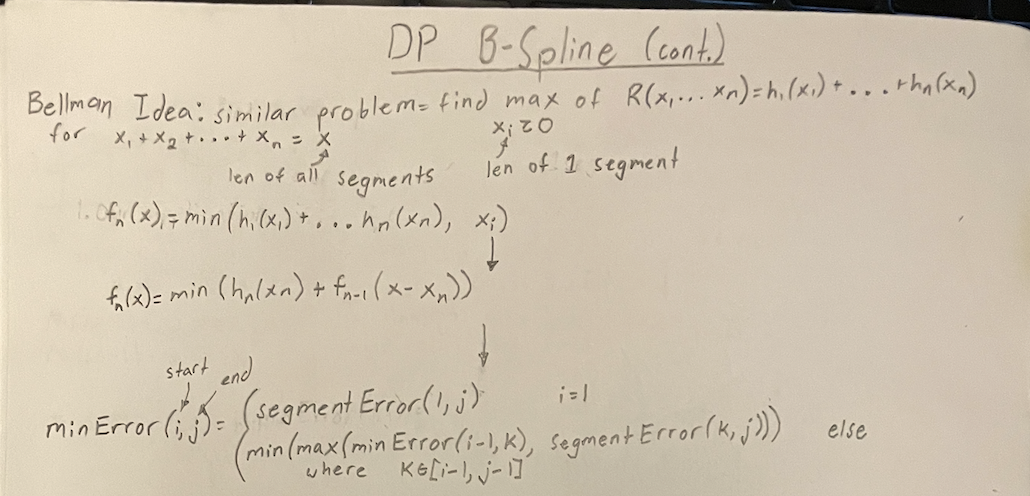 DP B-Spline (cont.)
Bellman Idea: similar problem= find max of R(x₁... xn)=h₁(x₁)+...+hn(xn)
for x₁+x₂+....+xn = x xᵢ≥0
len of all segments len of 1 segment
fn(x)=min(h₁(x₁)+... hn(xn), xᵢ)
↓
fn(x)=min(hn(xn)+fn-1(x-xn))
↓
start end
minError(i,j)= (segmentError(1,j) i=1
(min(max(minError(i-1,k), segmentError(k,j))) else
where K∈[i-1,j-1]